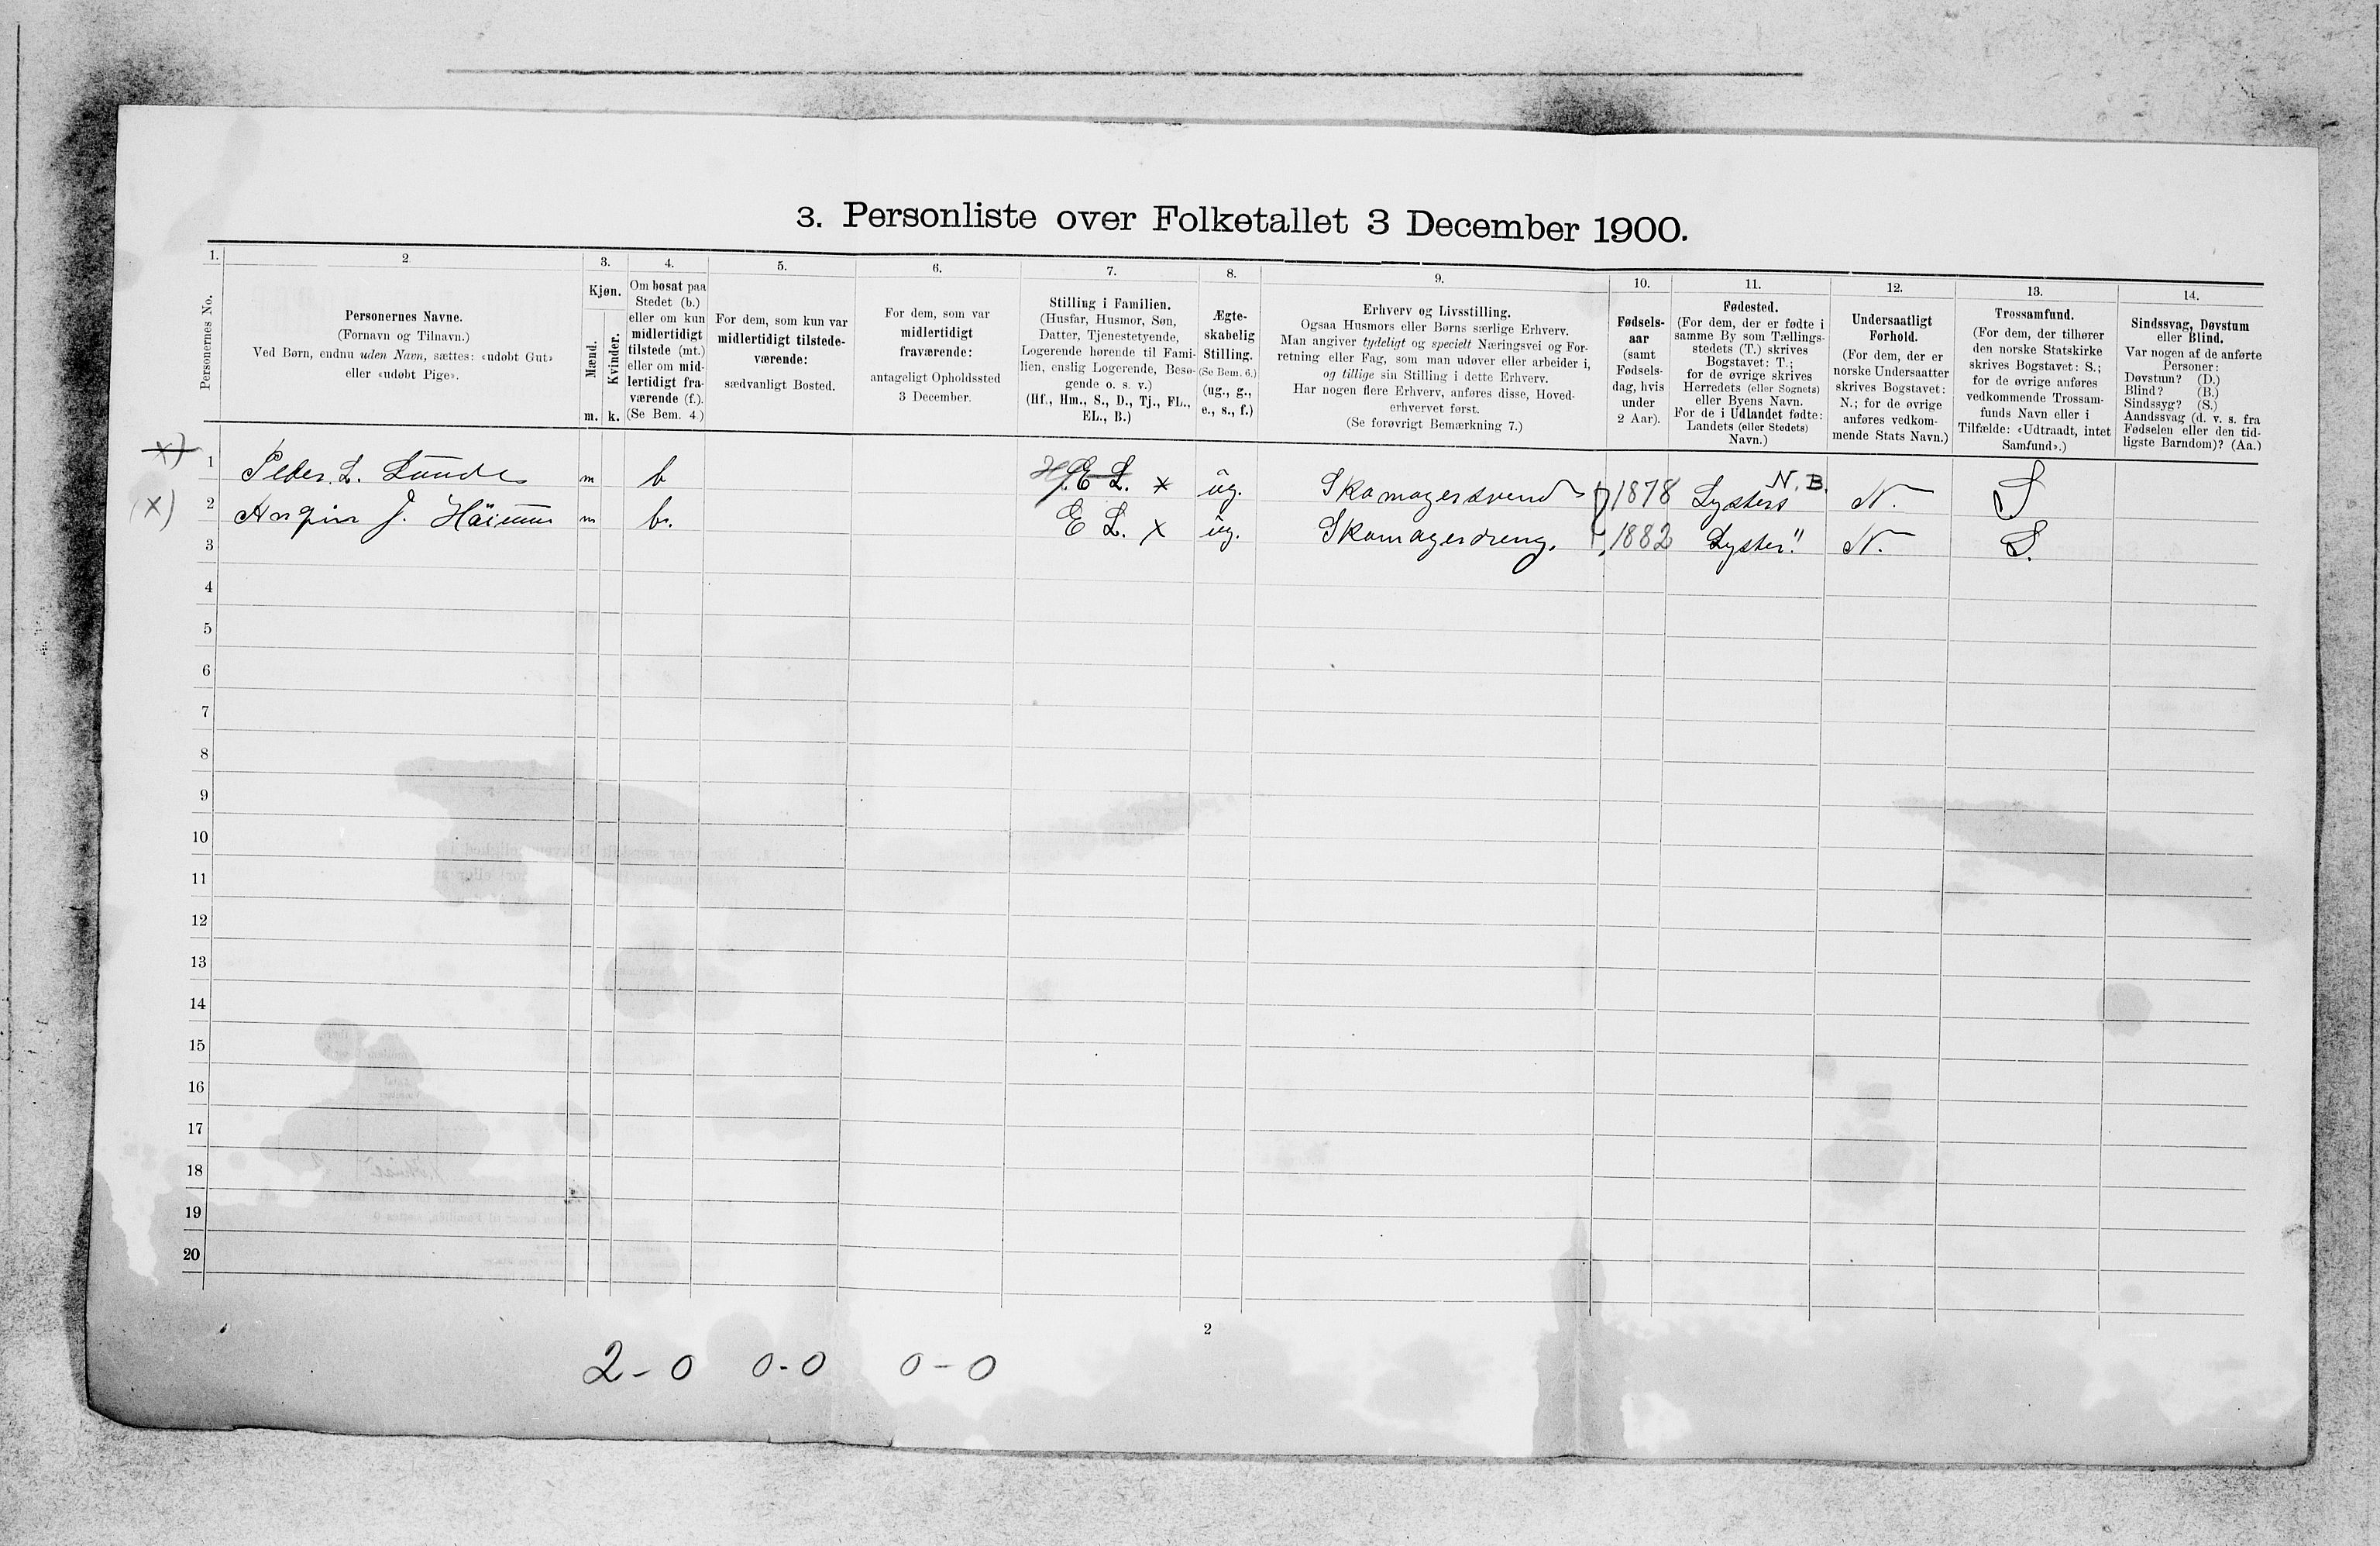 3. Personliste over Folketallet 3 December 1900.
1. 2 3. 4. 5. 6. 7. 8. 9. 10. 11. 12. 13. 14.
Personernes No.
Personernes Navne.
(Fornavn og Tilnavn.)
Ved Børn, endnu uden Navn, sættes: «udøbt Gut»
eller «udøbt Pige».
Kjøn.
Mænd.
Kvinder.
m. k.
Om bosat paa
Stedet (b.)
eller om kun
midlertidigt
tilstede (mt.)
eller om mid-
lertidigt fra-
værende (f.).
(Se Bem. 4.)
For dem, som kun var
midlertidigt tilstede-
værende:
sædvanligt Bosted.
For dem, som var
midlertidigt
fraværende:
antageligt Opholdssted
3 December.
Stilling i Familien.
(Husfar, Husmor, Søn,
Datter, Tjenestetyende,
Logerende hørende til Fami-
lien, enslig Logerende, Besø-
gende o. s. v.)
(Hf., Hm., S., D., Tj., FL.,
EL., B.)
Ægte-
skabelig
Stilling.
(Se Bem. 6.)
(ug., g.,
e., s., f.)
Erhverv og Livsstilling.
Ogsaa Husmors eller Børns særlige Erhverv.
Man angiver tydeligt og specielt Næringsvei og For-
retning eller Fag, som man udøver eller arbeider i,
og tillige sin Stilling i dette Erhverv.
Har nogen flere Erhverv, anføres disse, Hoved-
erhvervet først.
(Se forøvrigt Bemærkning 7.)
Fødsels-
aar
(samt
Fødsels-
dag, hvis
under
2 Aar).
Fødested.
(For dem, der er fødte i
samme By som Tællings-
stedets (T.) skrives
Bogstavet: T.;
for de øvrige skrives
Herredets (eller Sognets)
eller Byens Navn.
For de i Udlandet fødte:
Landets (eller Stedets)
Navn.)
Undersaatligt
Forhold.
(For dem, der er
norske Undersaatter
skrives Bogstavet:
N.; for de øvrige
anføres vedkom-
mende Stats Navn.)
Trossamfund.
(For dem, der tilhører
den norske Statskirke
skrives Bogstavet: S.;
for de øvrige anføres
vedkommende Trossam-
funds Navn eller i
Tilfælde: «Udtraadt, intet
Samfund».)
Sindssvag, Døvstum
eller Blind.
Var nogen af de anførte
Personer:
Døvstum? (D.)
Blind? (B.)
Sindssyg? (S.)
Aandssvag (d. v. s. fra
Fødselen eller den tid-
ligste Barndom)? (Aa.)
x) 1 Peder. L. Lunde m b E L. x ug. Skomagersvend 1878 Lysters N. B. N. S
(x) 2 J. m b. E L. x ug. Skomagerdreng. 1882 Lyster." N. S.
3
4
5
6
7
8
9
10
11
12
13
14
15
16
17
18
19
20
2
2-0 0-0 0-0